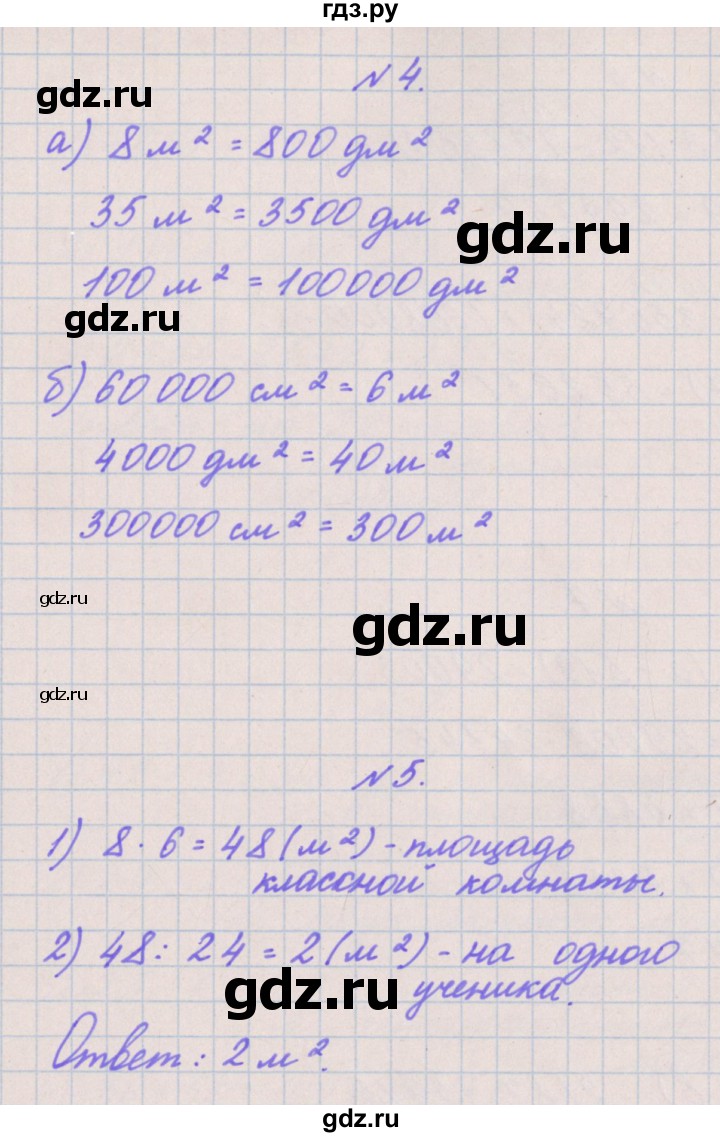 гдз.ру
№ 4.
gdz.ru
а) 8 м² = 800 дм²
35 м² = 3500 дм²
gdz.ru
100 м² = 100000 дм²
gdz.ru
б) 60 000 см² = 6 м²
4000 дм² = 40 м²
300000 см² = 300 м²
gdz.ru
gdz.ru
gdz.ru
№ 5.
1) 8 · 6 = 48 (м²) - площадь
классной комнаты.
2) 48 : 24 = 2 (м²) - на одного
gdz.ru
ученика.
Ответ : 2 м².
gdz.ru